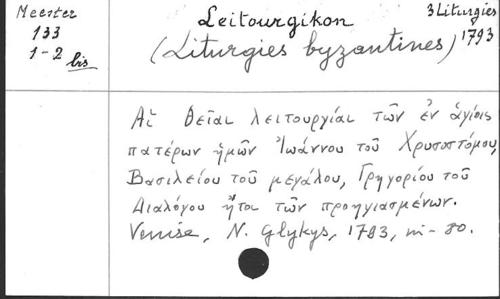 Meester
133
1-2 bis
Leitourgikon
3 Liturgies
(Liturgies byzantines) 1793
Αἱ θεῖαι λειτουργίαι τῶν ἐν ἁγίοις
πατέρων ἡμῶν Ἰωάννου τοῦ Χρυσοστόμου,
Βασιλείου τοῦ μεγάλου, Γρηγορίου τοῦ
Διαλόγου ἤτοι τῶν προηγιασμένων.
Venise, N. Glykys, 1793, in-80.